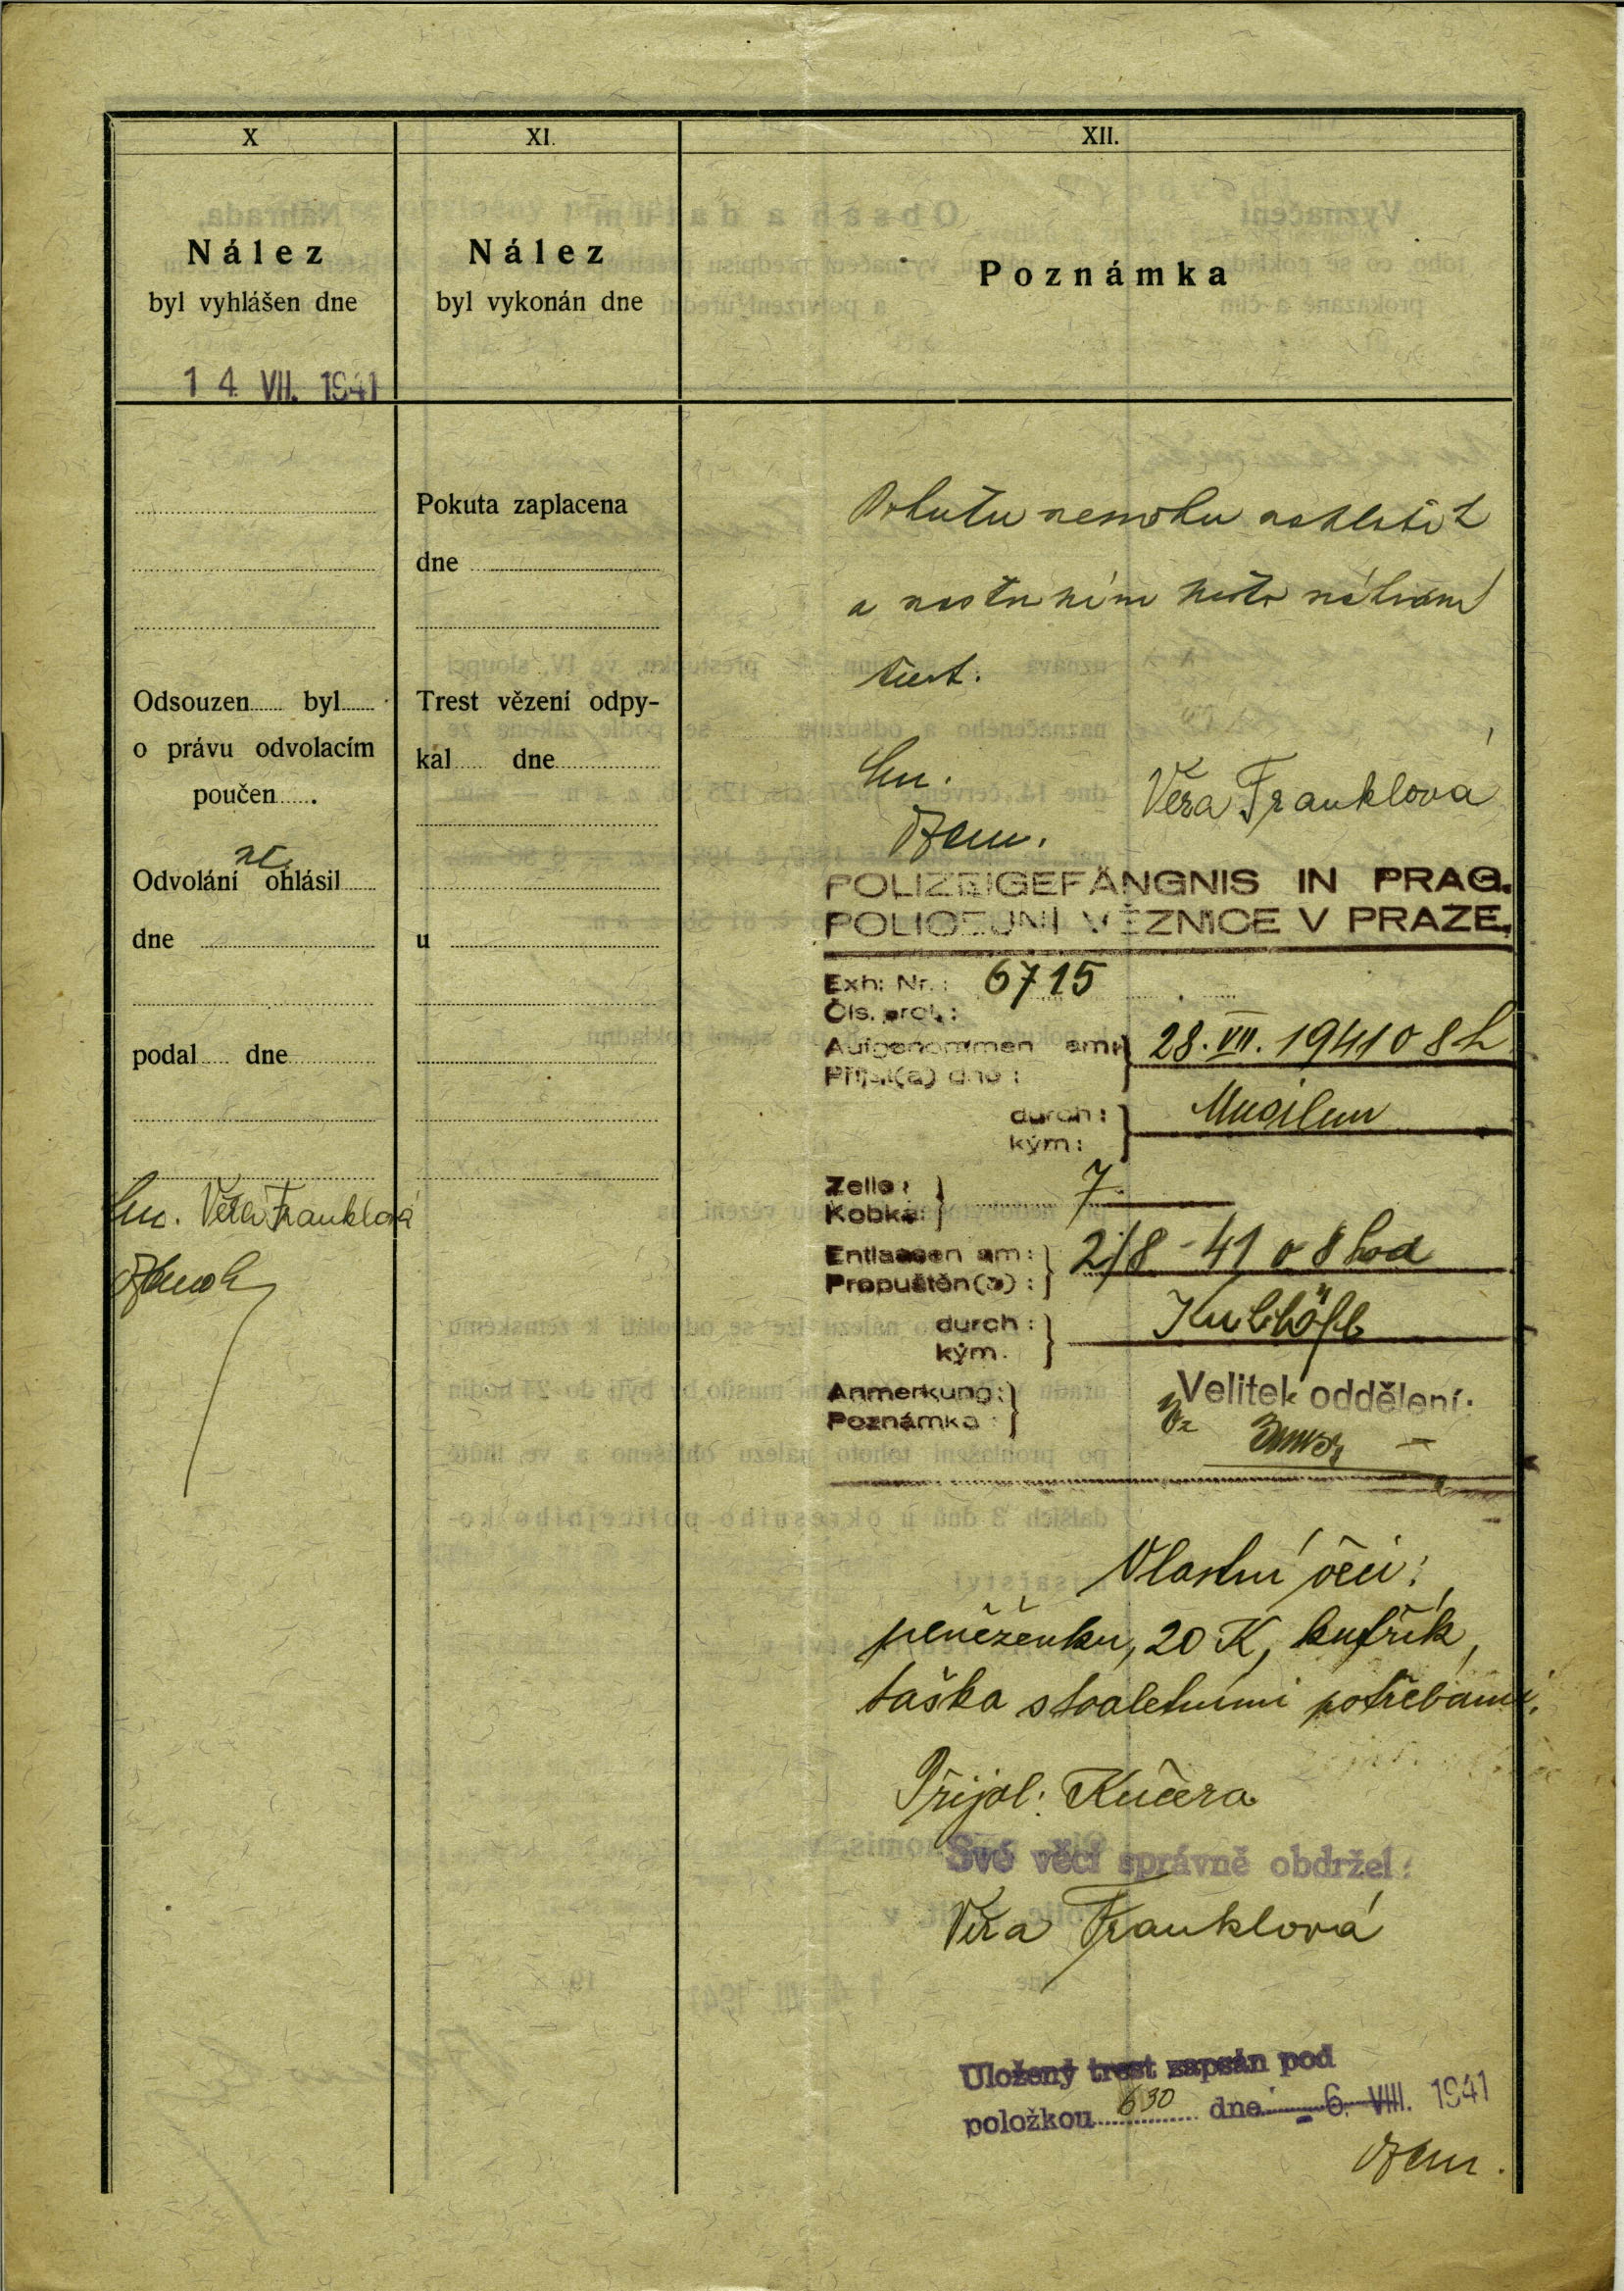 X
Nález
byl vyhlášen dne
14 VII. 1941
Odsouzen...... byl......
o právu odvolacím
poučen.......
ne
Odvolání ohlásil......
dne
podal...... dne
Věra Franklová
XI.
Nález
byl vykonán dne
Pokuta zaplacena
dne
Trest vězení odpy-
kal...... dne
u
XII.
Poznámka
Pokutu nemohu
a nastupuji
trest.
Věra Franklová
POLIZEIGEFÄNGNIS IN PRAG.
POLICEJNÍ VĚZNICE V PRAZE.
Exh: Nr.: 6715
Čís. prot.:
Aufgenommen am: 28. VII. 1941 o 8 h
Přijat(a) dne:
durch: Musilem
kým:
Zelle: 7
Kobka:
Entlassen am: 2/8 - 41 o 8 hod
Propuštěn(a):
durch:
kým.
Anmerkung: Velitel oddělení.
Poznámka:
Vlastní věci:
peněženku, 20 K, kufřík,
taška s toaletními potřebami.
Přijal: Kučera
Své věci správně obdržel:
Věra Franklová
Uložený trest zapsán pod
položkou 630 dne - 6. VIII. 1941